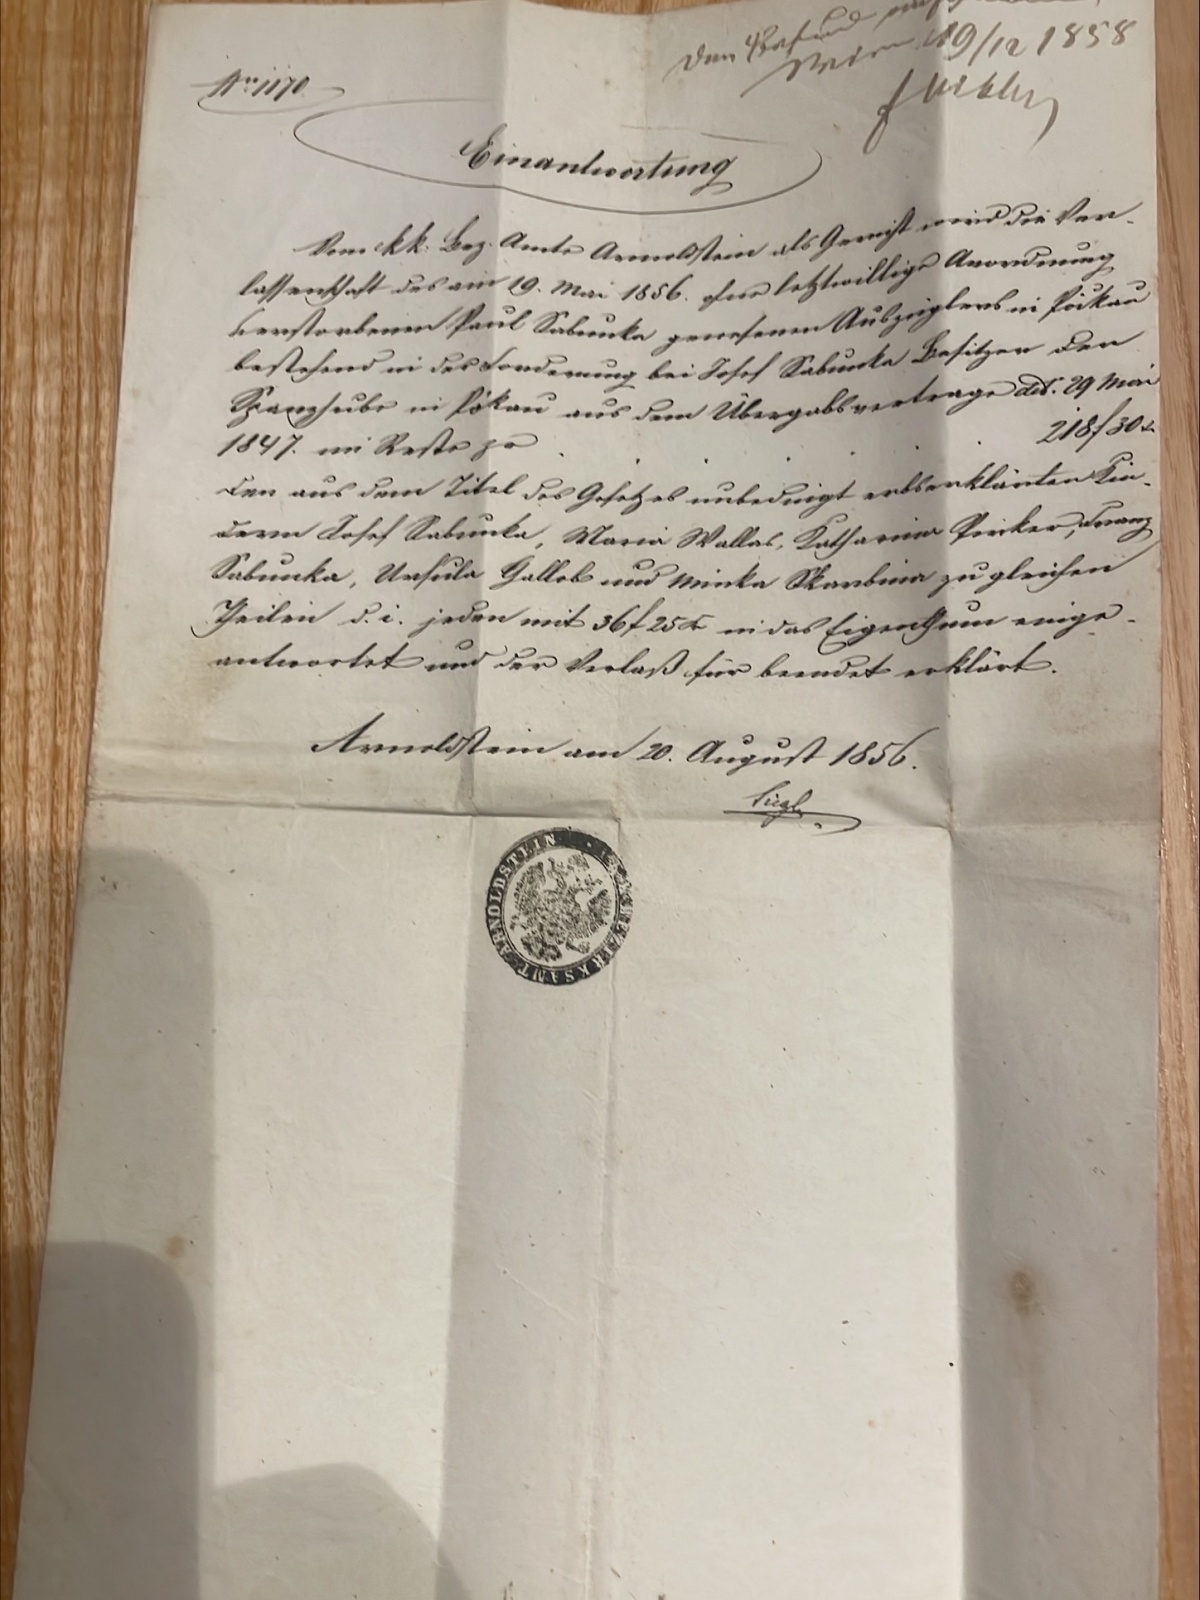 Den Befund
Wien 19/12 1858
No 1170
Einantwortung
Vom kk. Bez. Amte Arnoldstein als Gericht wird die Ver-
lassenschaft des am 19. Mai 1856. ohne letztwillige Anordnung
verstorbenen Paul Sabunka gewesenen Auszüglers in Pökau
bestehend in der Forderung bei Josef Sabunka Besitzer der
hube in Pökau aus dem Übergabsvertrage ddt. 29 Mai
1847. im Reste pr 218 f 30 x
den aus dem Titel des Gesetzes unbedingt erbserklärten Kin-
dern Josef Sabunka, Maria Wallas, Katharina Pirker, Franz
Sabunka, Ursula Gallob und Minka Skarbina zu gleichen
Theilen d. i. jeden mit 36 f 25 x in das Eigenthum einge-
antwortet und der Verlaß für beendet erklärt.
Arnoldstein am 20. August 1856.
K. K. BEZIRKSAMT ARNOLDSTEIN